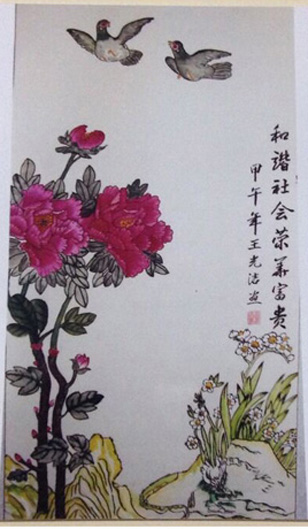 和谐社会荣华富贵
甲午年王光洁画